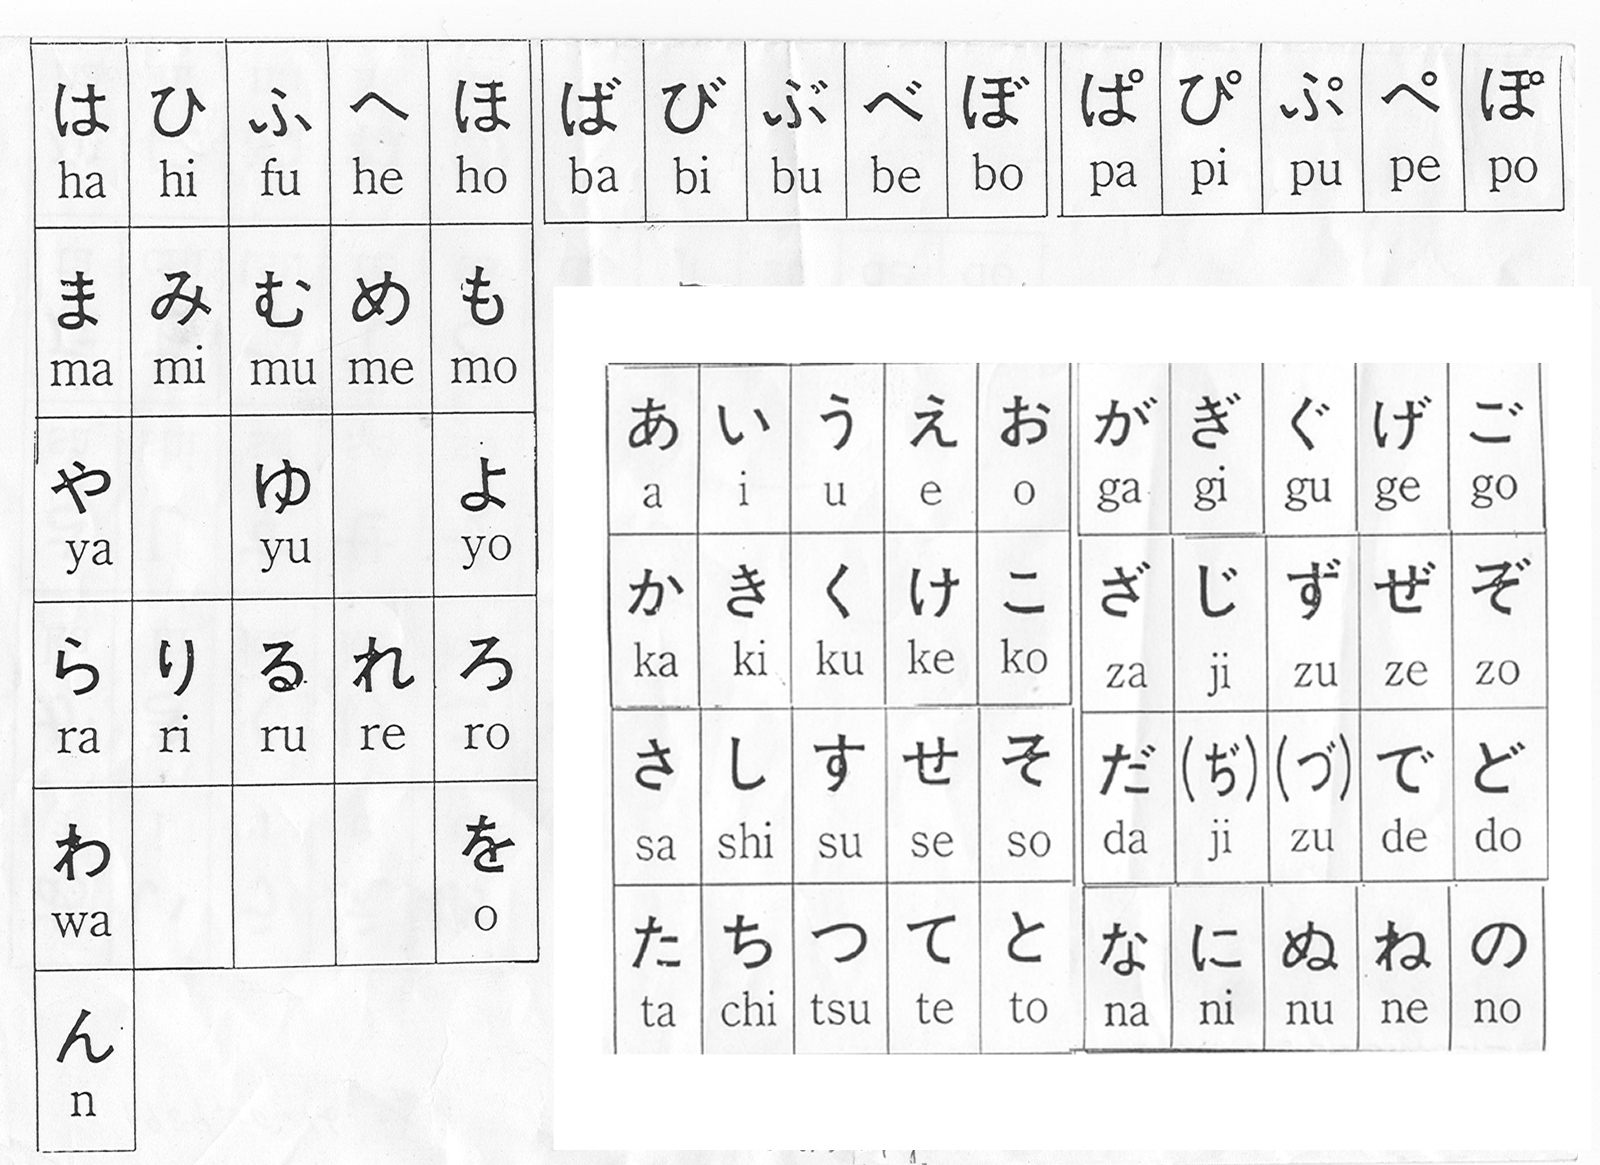 は ひ ふ へ ほ ば び ぶ べ ぼ ぱ ぴ ぷ ぺ ぽ
ha hi fu he ho ba bi bu be bo pa pi pu pe po
ま み む め も
ma mi mu me mo
や ゆ よ
ya yu yo
ら り る れ ろ
ra ri ru re ro
わ を
wa o
ん
n
あ い う え お が ぎ ぐ げ ご
a i u e o ga gi gu ge go
か き く け こ ざ じ ず ぜ ぞ
ka ki ku ke ko za ji zu ze zo
さ し す せ そ だ (ぢ) (づ) で ど
sa shi su se so da ji zu de do
た ち つ て と な に ぬ ね の
ta chi tsu te to na ni nu ne no